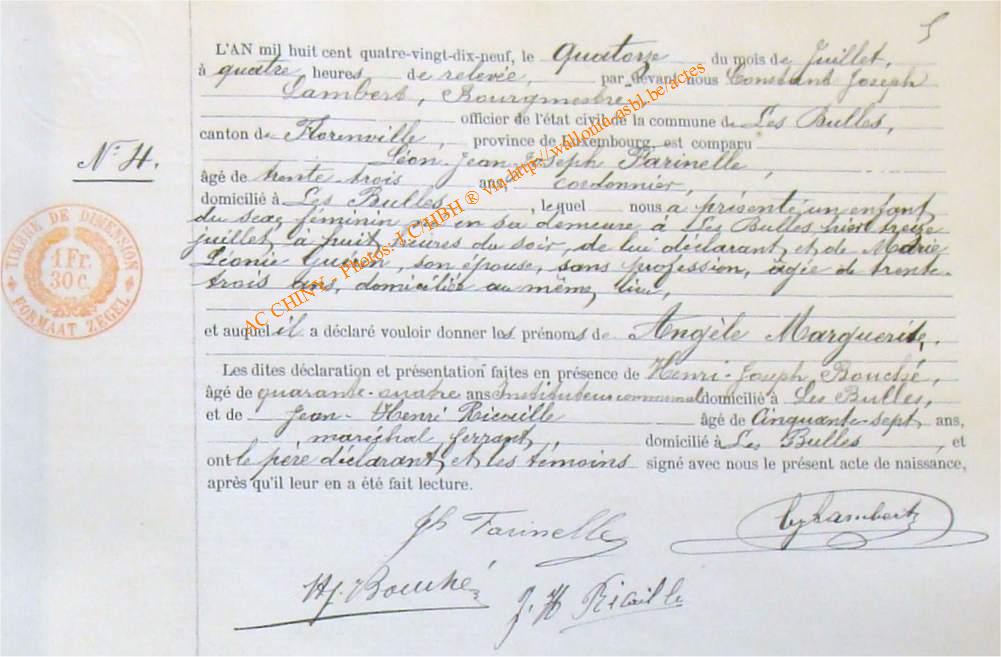 5
L'AN mil huit cent quatre-vingt-dix-neuf, le Quatorze du mois de Juillet,
à quatre heures de relevée, par devant nous Constant Joseph
Lambert, Bourgmestre,
officier de l'état civil de la commune de Les Bulles,
canton de Florenville, province de Luxembourg, est comparu
N° 4.
Léon Jean Joseph Farinelle,
âgé de trente trois ans, cordonnier,
domicilié à Les Bulles, lequel nous a présenté un enfant
du sexe féminin né en sa demeure à Les Bulles hier treize
juillet à huit heures du soir, de lui déclarant et de Marie
Léonie, son épouse, sans profession, âgée de trente-
trois ans, domiciliée au même lieu,
et auquel il a déclaré vouloir donner les prénoms de Angèle Marguerite.
Les dites déclaration et présentation faites en présence de Henri-Joseph Bouché,
âgé de quarante-quatre ans Instituteur communal domicilié à Les Bulles,
et de Jean-Henri Ricaille âgé de Cinquante-sept ans,
maréchal ferrant, domicilié à Les Bulles, et
ont le père déclarant et les témoins signé avec nous le présent acte de naissance,
après qu'il leur en a été fait lecture.
Farinelle
Lambert
Hj. Bouché
J. H Ricaille
TIMBRE DE DIMENSION
1 Fr.
30 C.
FORMAAT ZEGEL
AC CHINY - Photos: LC/HBH ® via http://wallonia-asbl.be/actes